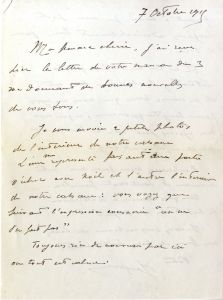 7 Octobre 1915
Ma          chérie, j'ai
       la lettre de votre maman du 3
me donnant de bonnes nouvelles
de vous tous.
Je vous envoie 2 petites photos
de l'intérieur de notre cabane
L'une représente
                      et l'autre l'intérieur
de notre cabane : vous voyez que
suivant l'expression          "on ne
s'en fait pas"
Toujours rien de nouveau par ici
où tout est calme.